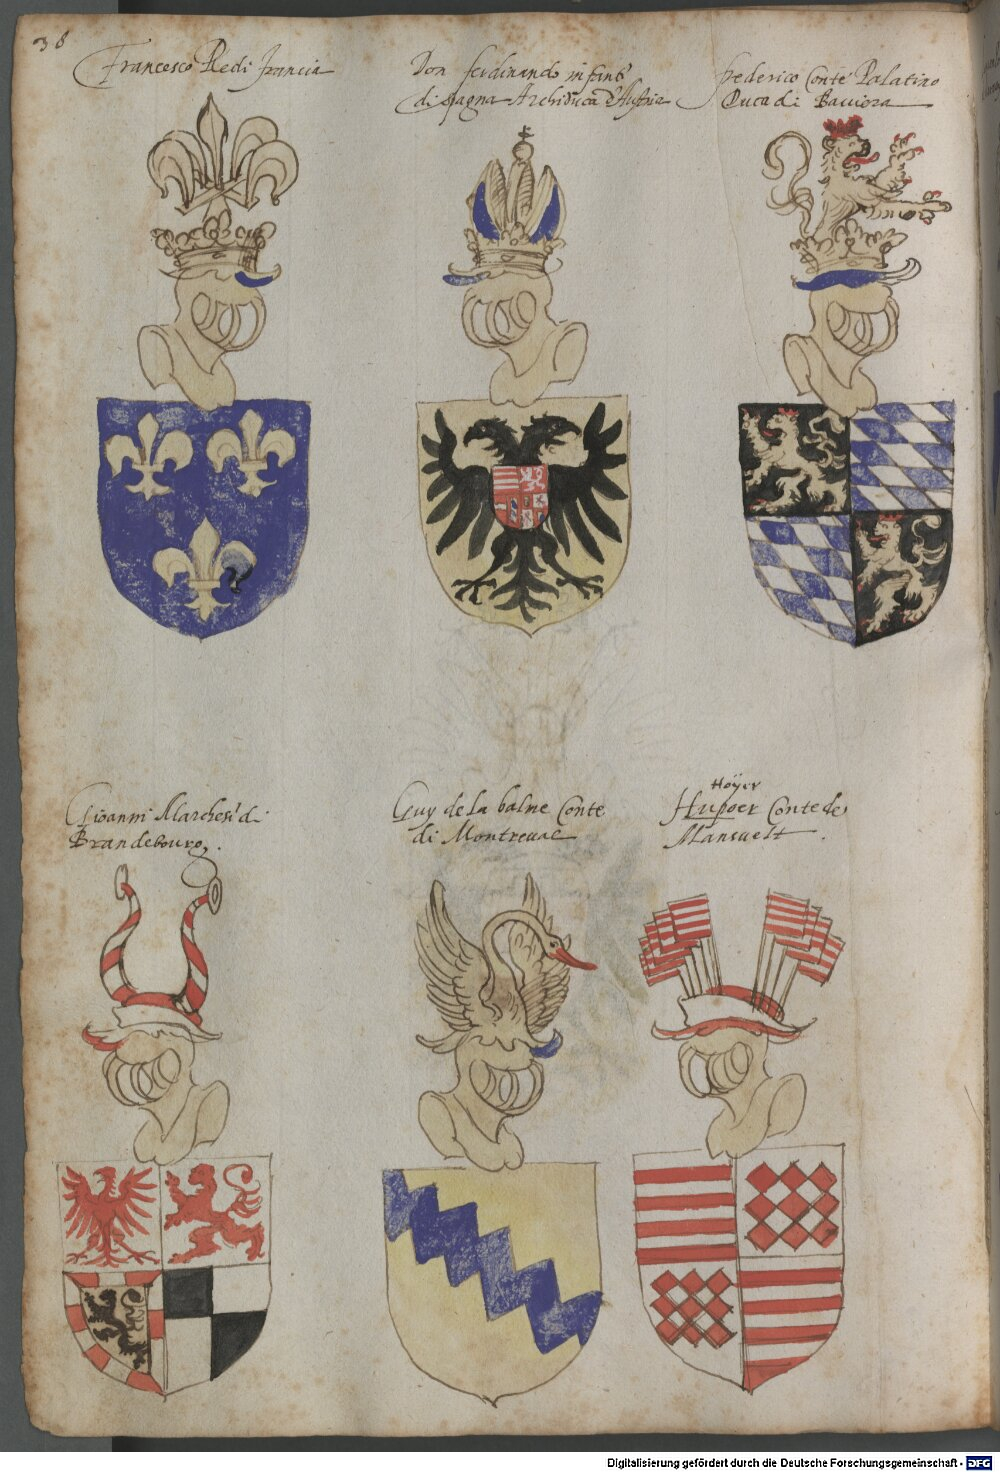 38
Francesco Re di francia
Don ferdinando infante
di spagna Archiduca d'Austria
frederico Conte Palatino
Duca di Baviera
Gioanni Marchese di
Brandebourg.
Guy de la balme Conte
di Montreval
Höyer
Hupoer Conte de
Mansvelt.
Digitalisierung gefördert durch die Deutsche Forschungsgemeinschaft - DFG